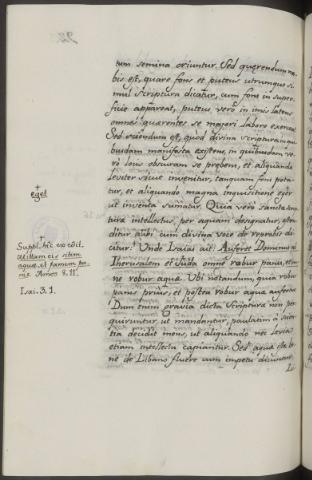 tum semina oriuntur. Sed querendum no-
bis est, quare fons et puteus utrumque si-
mul Scriptura dicatur, cum fons in super-
ficie appareat, puteus vero in imis latens
omnes quarentes se majori labore exerceat.
Sed sciendum est, quod divina scriptura in qui-
busdam manifesta existens, in quibusdam ve-
ro locis obscuram se prebens, et aliquando
leviter sicut invenitur, tanquam fons pota-
tur, et aliquando magna inquisitione
ut inventa sumatur. Quia vero sancta
tura intellectus, per aquam designatur, osten-
ditur alibi cum divina voce de reprobis di-
citur: Unde Isaias ait. Auferet Dominus ab
Iherusalem et Juda omne robur panis, et om-
ne robur aque. Ubi notandum, quia robur
panis prius, et postea robur aque auferri
Dum enim gravia dicta Scriptura non per-
quiruntur, ut mandantur, paulatim à
tia decidit mens, ut aliquando nec levia
etiam intellecta capiantur. Sed aqua ista be-
ne de Libano fluere cum impetu dicuntur.
+
egel
Suppl. hîc
mittam eis sitim
aque, et famem pa-
nis. Amos 8. 11.
Isai. 3. 1.